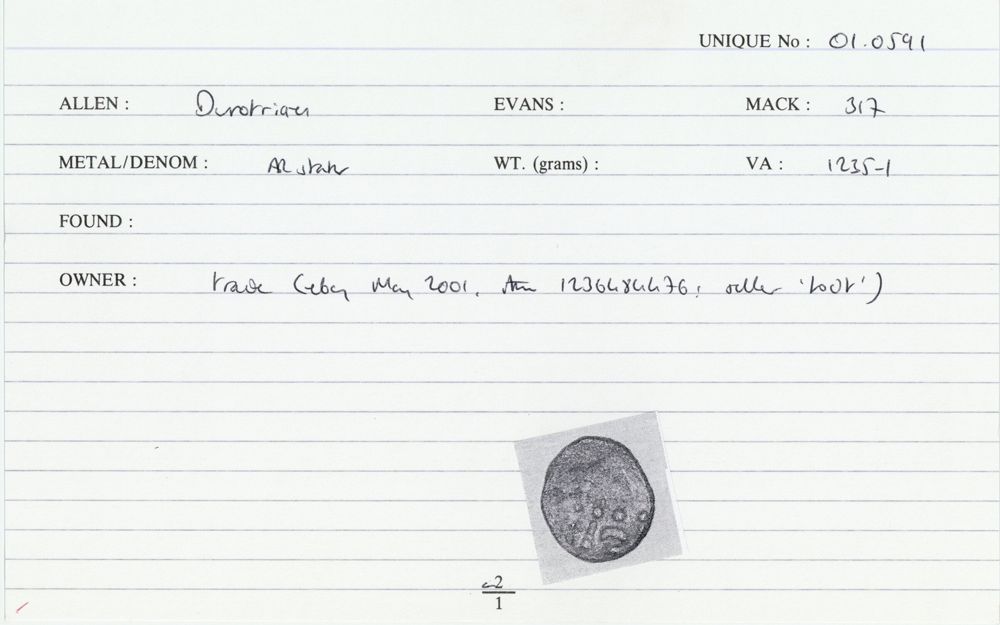 UNIQUE No : 01.0591
ALLEN : Durotrigan EVANS : MACK : 317
METAL/DENOM : AR stater WT. (grams) : VA : 1235-1
FOUND :
OWNER : trade (eBay May 2001, item 1236484476: seller 'loot')
c2
1